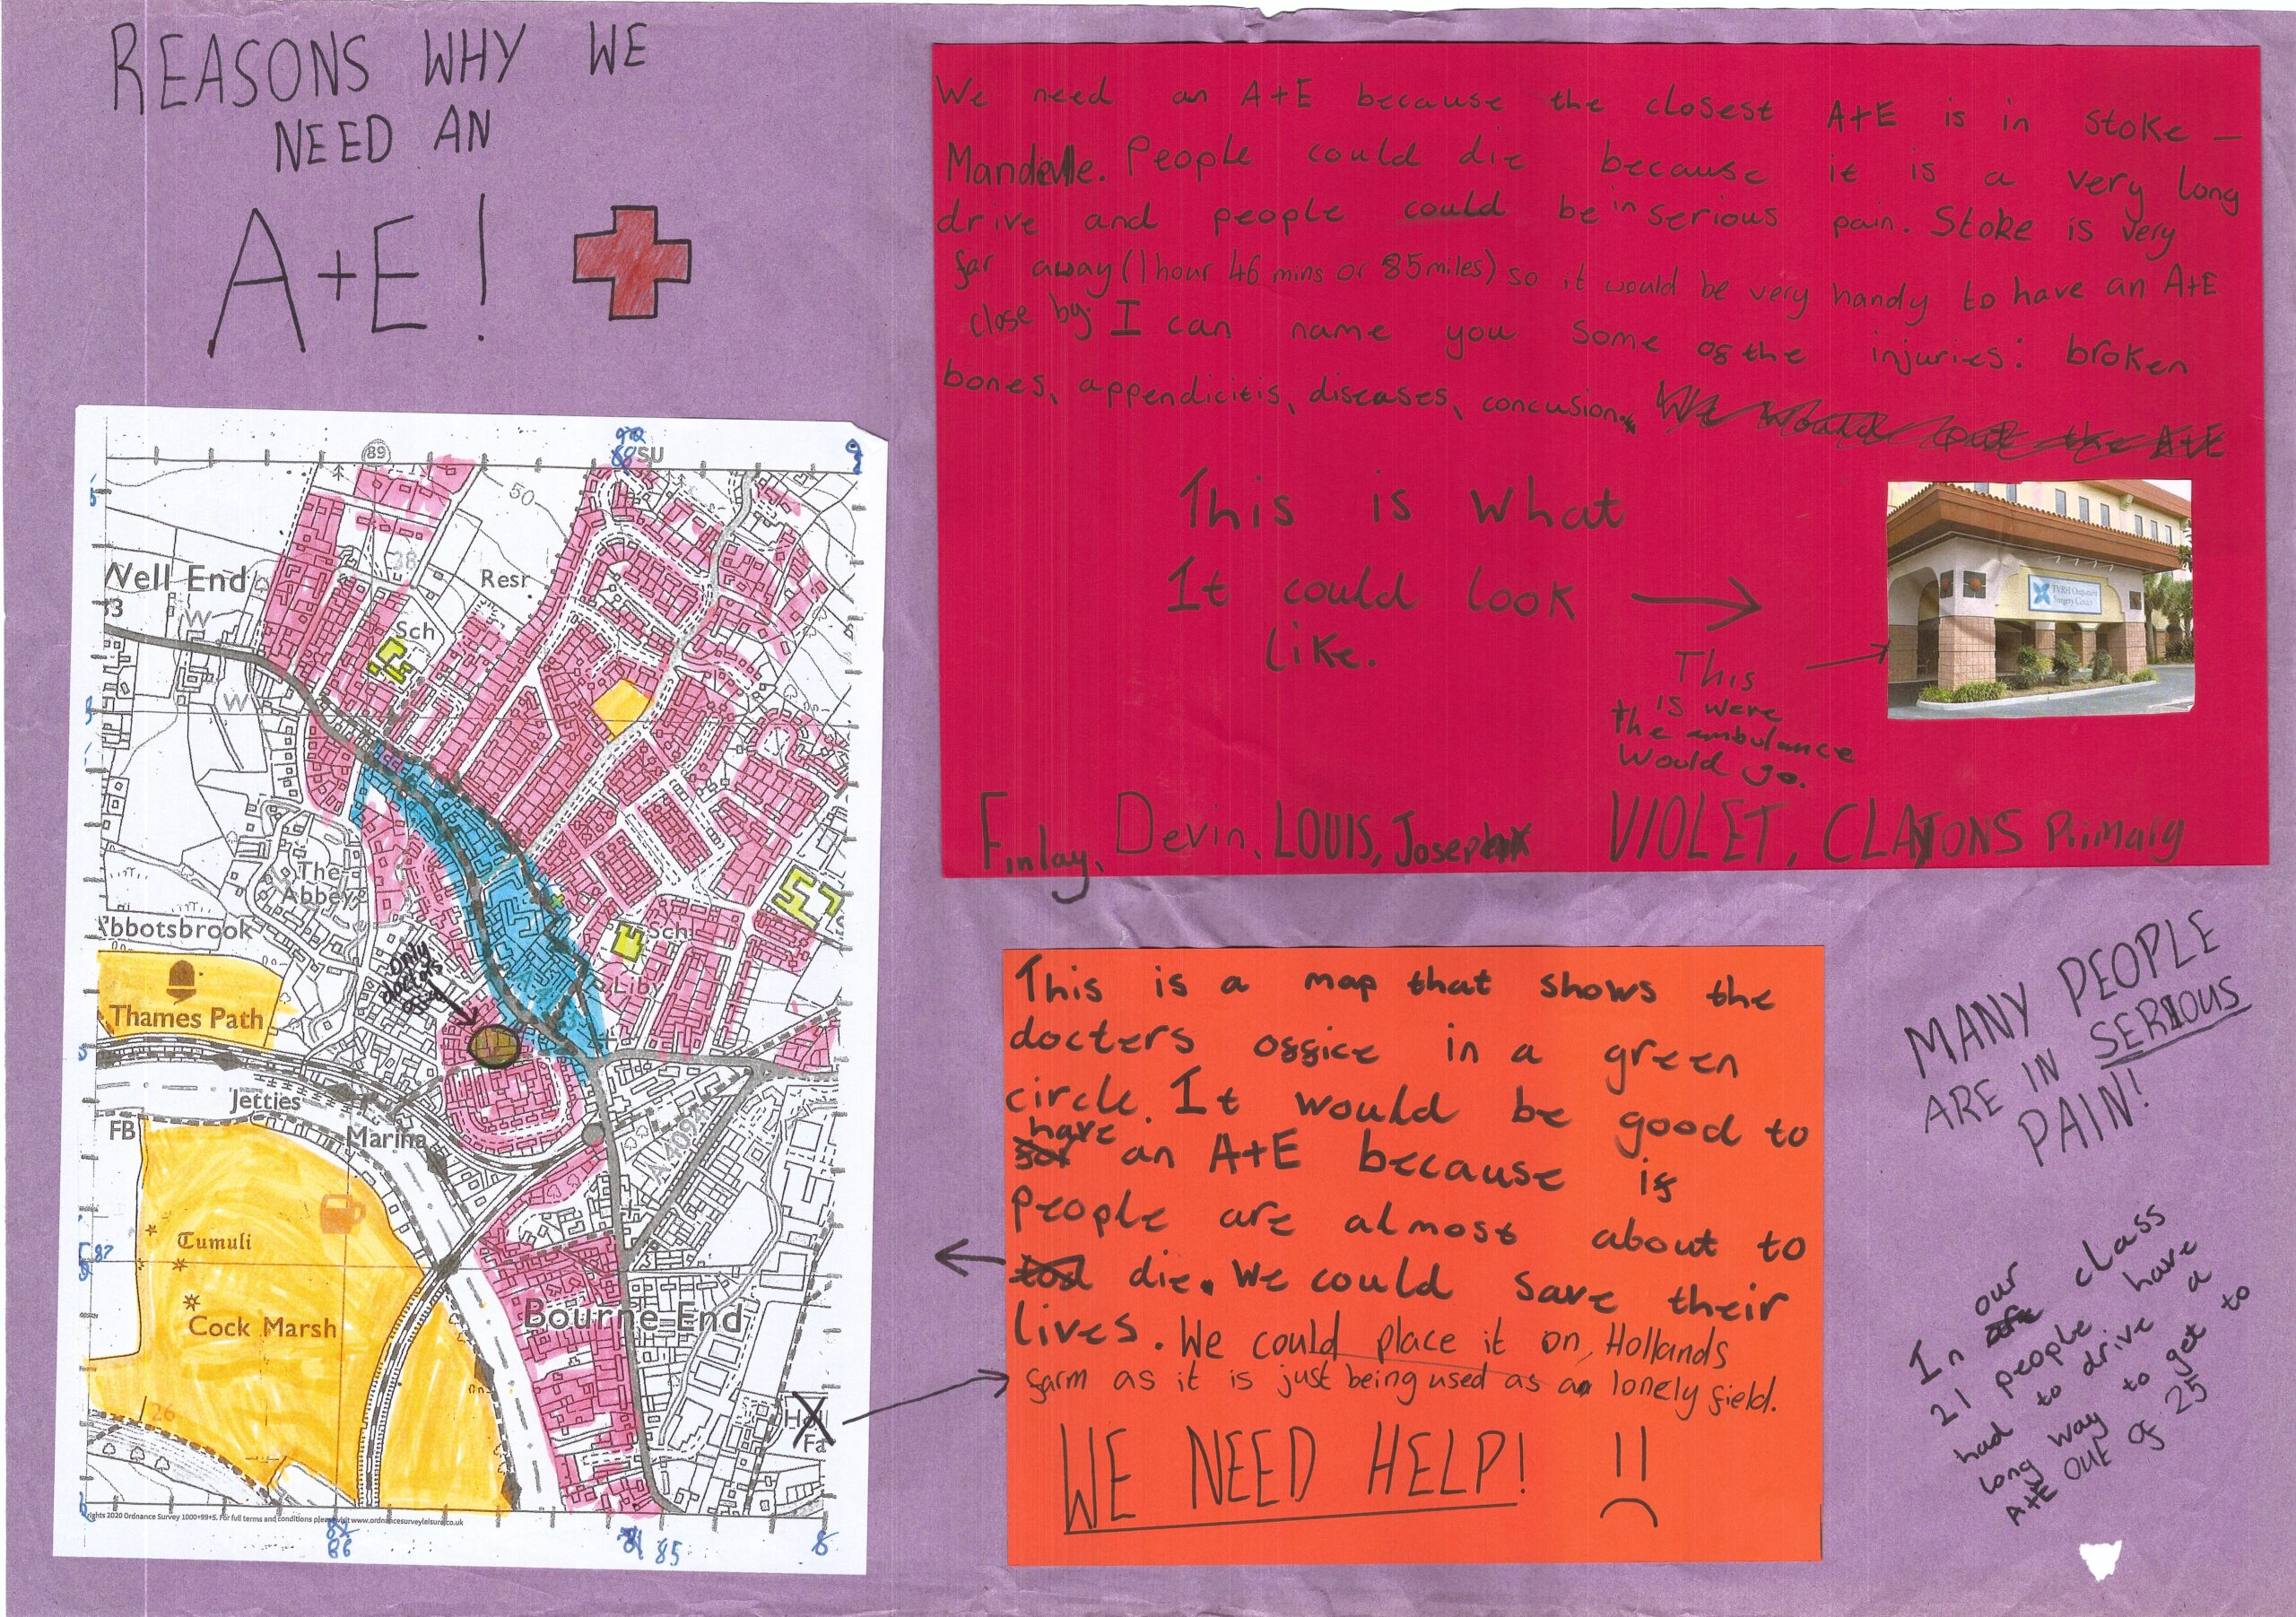 REASONS WHY WE
NEED AN
A+E!
We need an A+E because the closest A+E is in Stoke –
Mandevlle. People could die because it is a very long
drive and people could be in serious pain. Stoke is very
far away (1 hour 46 mins or 85 miles) so it would be very handy to have an A+E
close by. I can name you some of the injuries: broken
bones, appendicitis, diseases, concusion.
This is what
It could look
like.
This
is were
the ambulance
would go.
TVRH Outpatient
Surgery Center
Finlay, Devin, LOUIS, Joseph VIOLET, CLAYTONS Primary
89
88
SU
50
Well End
33
W
38
Resr
Sch
W
The
Abbey
Abbotsbrook
Sch
only
doctors
Liby
Thames Path
Jetties
FB
Marina
A4094
87
Tumuli
Cock Marsh
Bourne End
26
Fa
rights 2020 Ordnance Survey 1000+99+S. For full terms and conditions please visit www.ordnancesurveyleisure.co.uk
86
85
This is a map that shows the
docters office in a green
circle. It would be good to
have an A+E because if
people are almost about to
die. We could save their
lives. We could place it on, Hollands
farm as it is just being used as a lonely field.
WE NEED HELP!
MANY PEOPLE
ARE IN SERIOUS
PAIN!
In our class
21 people have
had to drive a
long way to get to
A+E out of 25